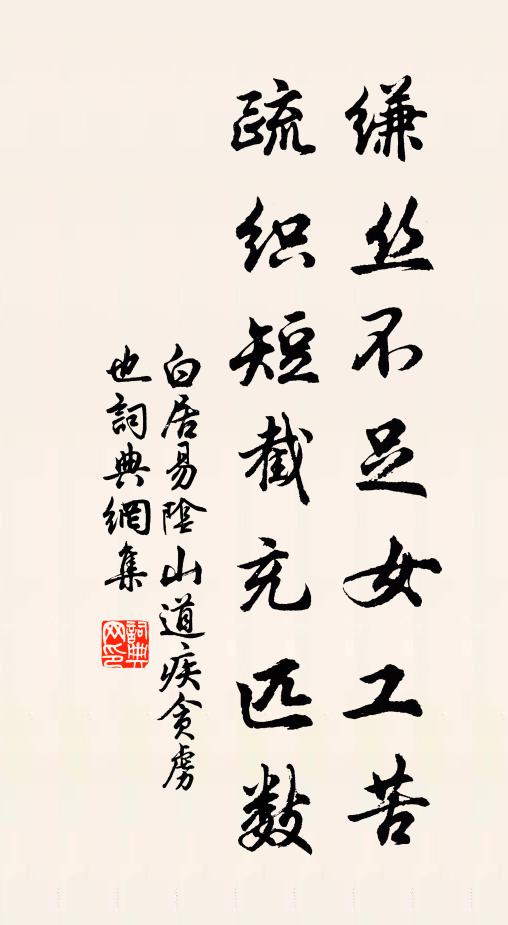 縑丝不足女工苦
疏织短截充匹数
白居易陰山道疾贪虏
也詞典網集
詞典
网印